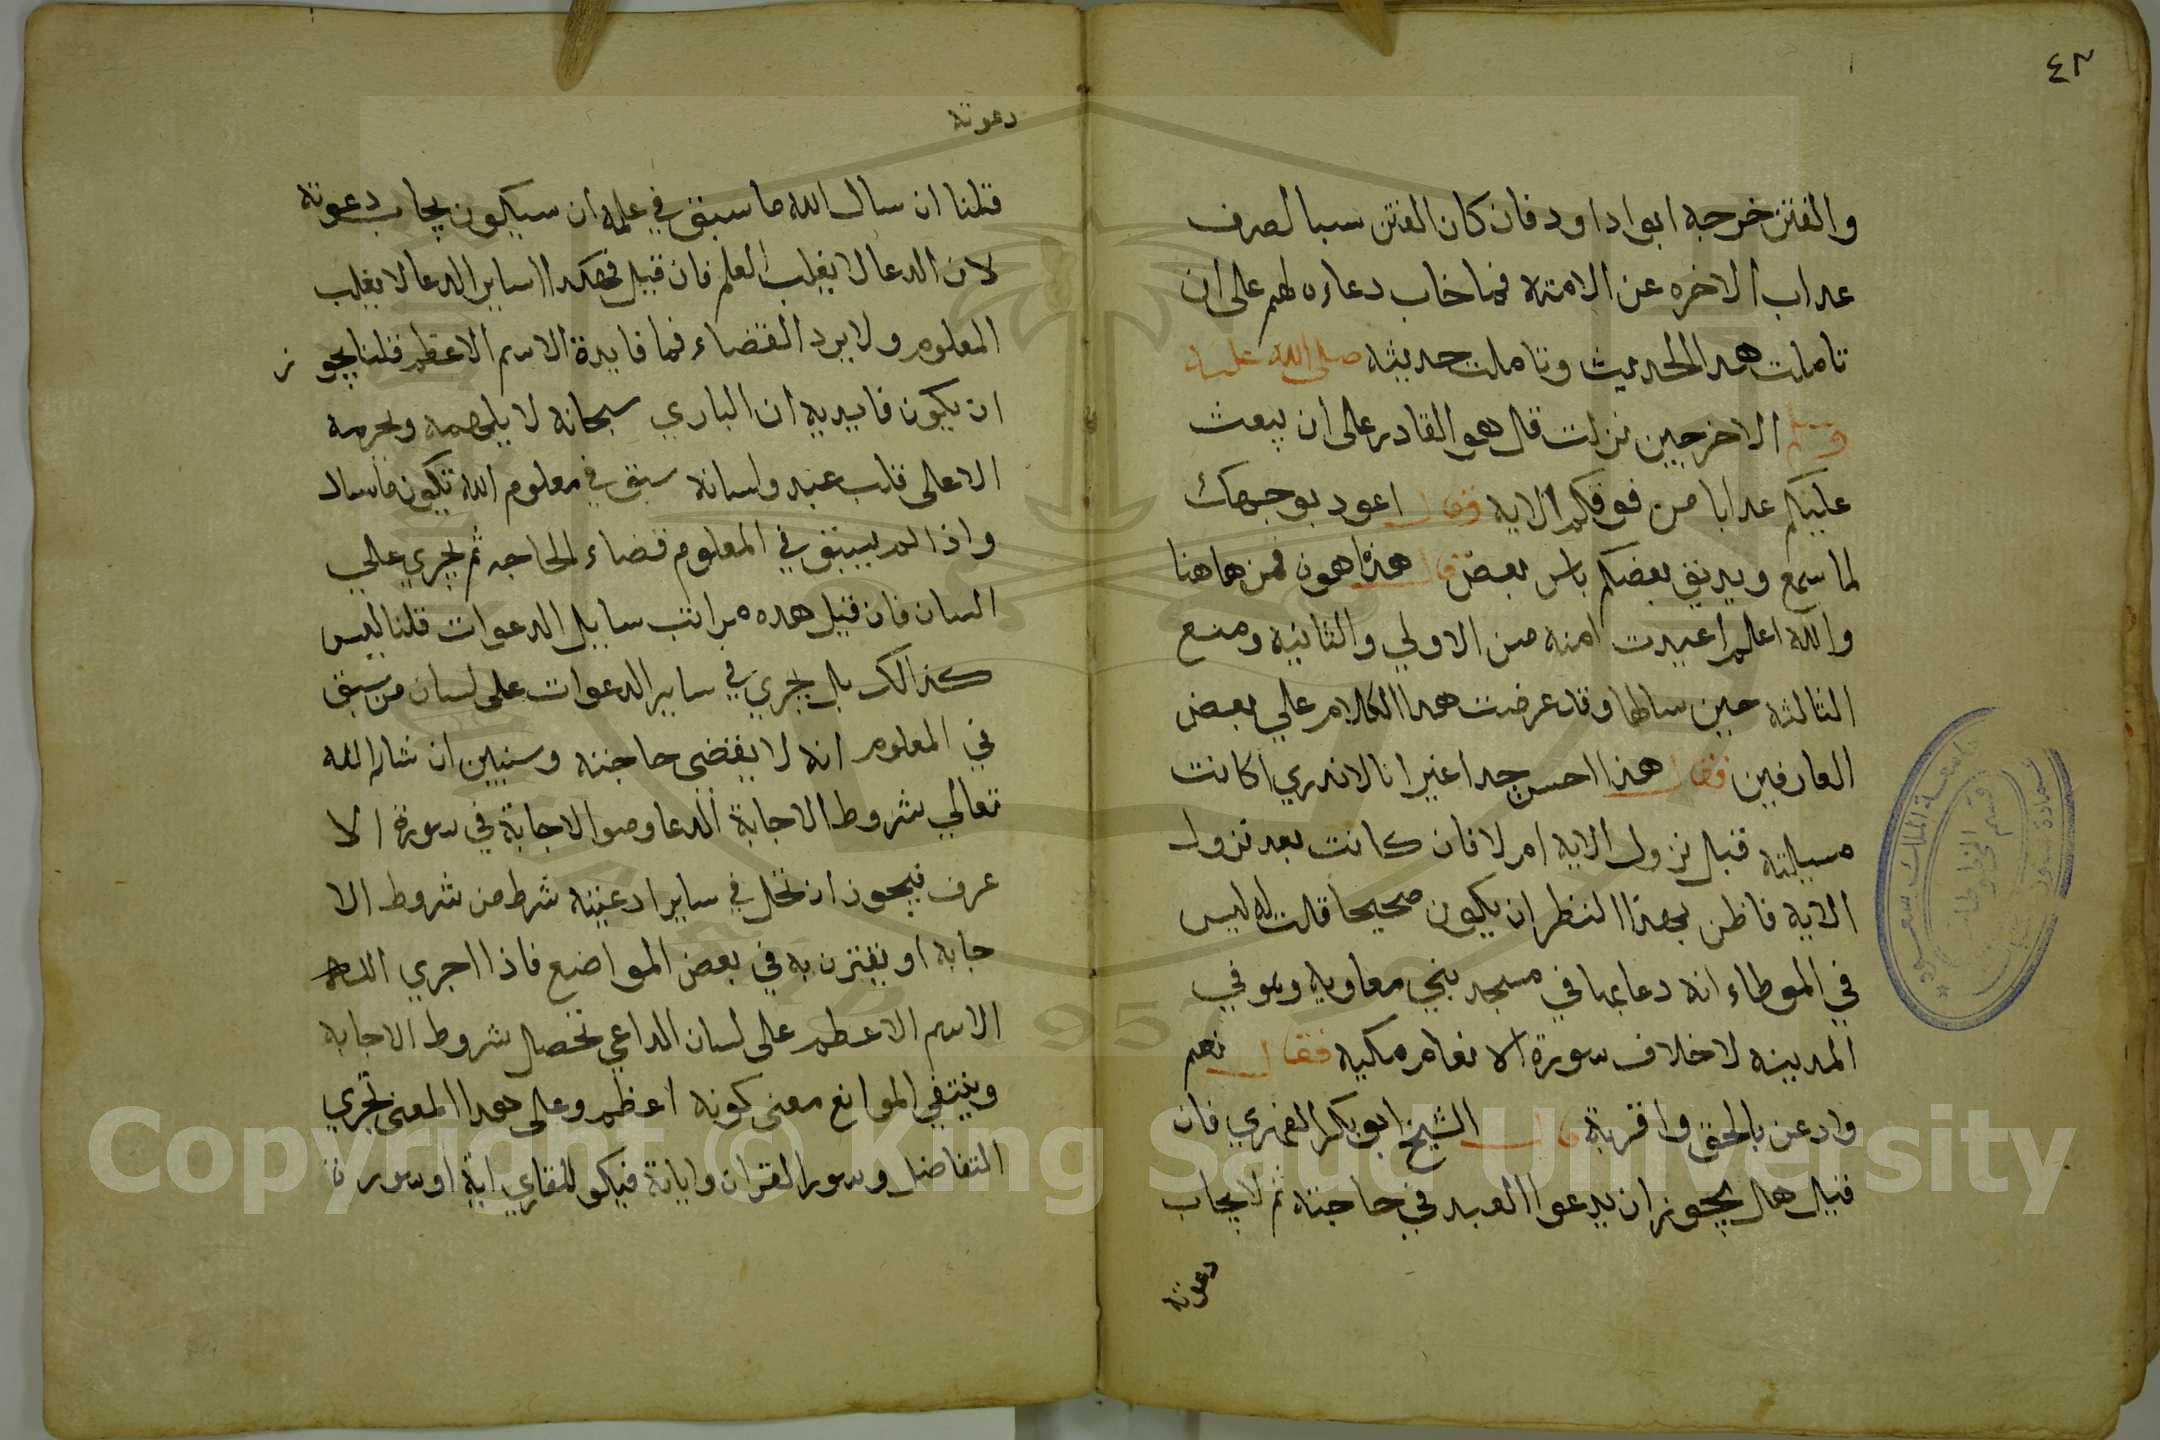 ٤٢
والفتن خرجه ابوا داود فان كان الفتن سببا لصرف
عداب الاخره عن الامته فما خاب دعاءه لهم على ان
تاملت هدا الحديث وتاملت حديثه صلى الله عليه
وسلم الاخر حين نزلت قال هو القادر على ان يبعث
عليكم عدابا من فوقكم الايه فقال اعود بوجهك
لما سمع ويديق بعضكم باس بعض قال هذا هون فمن هاهنا
والله اعلم اعيدت امته من الاولي والثانيه ومنع
الثالثه حين سالها وقد عرضت هدا الكلام علي بعض
العارفين فقال هذا احسن جدا غير انا لا ندري اكانت
مسيلته قبل نزول الايه ام لا فان كانت بعد نزول
الايه فاظن بهذا النظر ان يكون صحيحا قلت له ليس
في الموطاء انه دعا بها في مسجد بني معاويه وهو في
المدينه لا خلاف سورة الانعام مكيه فقال نعم
وادعن بالحق واقر به قال الشيخ ابو بكر الفهري فان
قيل هل يجوز ان يدعوا العبد في حاجته ثم لا يجاب
دعوته
دعوته
قلنا ان سال الله ما سبق في علمه ان سيكون يجاب دعوته
لان الدعا لا يغلب العلم فان قيل فهكدا اساير الدعا لا يغلب
المعلوم ولا يرد القضاء فما فايدة الاسم الاعظم قلنا يجو ز
ان يكون فاييديه ان الباري سبحانه لا يلهمه ويجريه
الاعلى قلب عبد ولسانه سبق في معلوم الله تكون ما سال
واذا لم يسبق في المعلوم قضاء الحاجه ثم يجري علي
السان فان قيل هده مراتب سايل الدعوات قلنا ليس
كذالك بل يجري في ساير الدعوات على لسان من سبق
في المعلوم انه لا يقضى حاجته وسنبين ان شالله
تعالي شروط الاجابة الدعا وصو الاجابة في سورة الا
عرف فيجوز ان تخل في ساير ادعيته شرط من شروط الا
جابه او يقترن به في بعض المواضع فاذا اجري الله
الاسم الاعظم على لسان الداعي تحصل شروط الاجابه
وينتفي الموانع معنى كونه اعظم وعلى هدا المعنى تجري
التفاضل وسور القران واياته فيكو للقاري اية او سورة
جامعة الملك سعود
قسم المخطوطات
Copyright © King Saud University